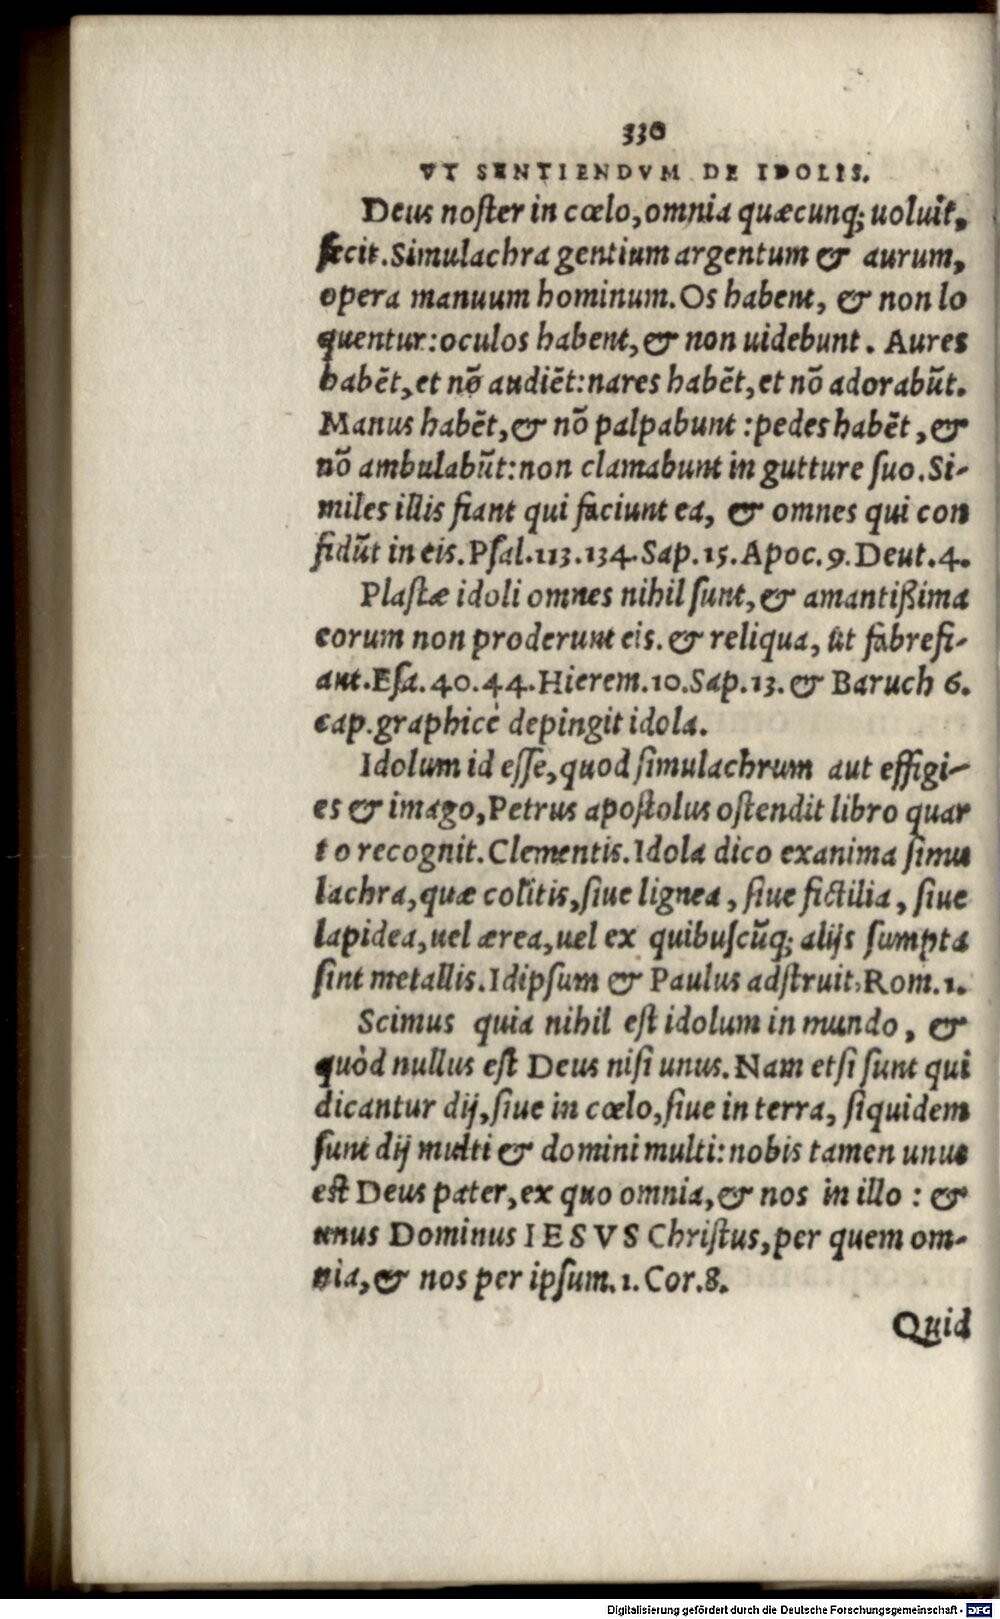 330
VT SENTIENDVM DE IDOLIS.
Deus noſter in cœlo, omnia quæcunq; uoluit,
fecit. Simulachra gentium argentum & aurum,
opera manuum hominum. Os habent, & non lo
quentur: oculos habent, & non uidebunt. Aures
habẽt, et nõ audiẽt: nares habẽt, et nõ adorabũt.
Manus habẽt, & nõ palpabunt: pedes habẽt, &
nõ ambulabũt: non clamabunt in gutture ſuo. Si-
miles illis fiant qui faciunt ea, & omnes qui con
fidũt in eis. Pſal. 113. 134. Sap. 15. Apoc. 9. Deut. 4.
Plaſtæ idoli omnes nihil ſunt, & amantißima
eorum non proderunt eis. & reliqua, ut fabrefi-
ant. Eſa. 40. 44. Hierem. 10. Sap. 13. & Baruch 6.
cap. graphicè depingit idola.
Idolum id eſſe, quod ſimulachrum aut effigi-
es & imago, Petrus apoſtolus oſtendit libro quar
to recognit. Clementis. Idola dico exanima ſimu
lachra, quæ colitis, ſiue lignea, ſiue fictilia, ſiue
lapidea, uel ærea, uel ex quibuſcũq; alijs ſumpta
ſint metallis. Idipſum & Paulus adſtruit, Rom. 1.
Scimus quia nihil eſt idolum in mundo, &
quòd nullus eſt Deus niſi unus. Nam etſi ſunt qui
dicantur dij, ſiue in cœlo, ſiue in terra, ſiquidem
ſunt dij multi & domini multi: nobis tamen unus
eſt Deus pater, ex quo omnia, & nos in illo: &
unus Dominus IESVS Chriſtus, per quem om-
nia, & nos per ipſum. 1. Cor. 8.
Quid
Digitalisierung gefördert durch die Deutsche Forschungsgemeinschaft - DFG